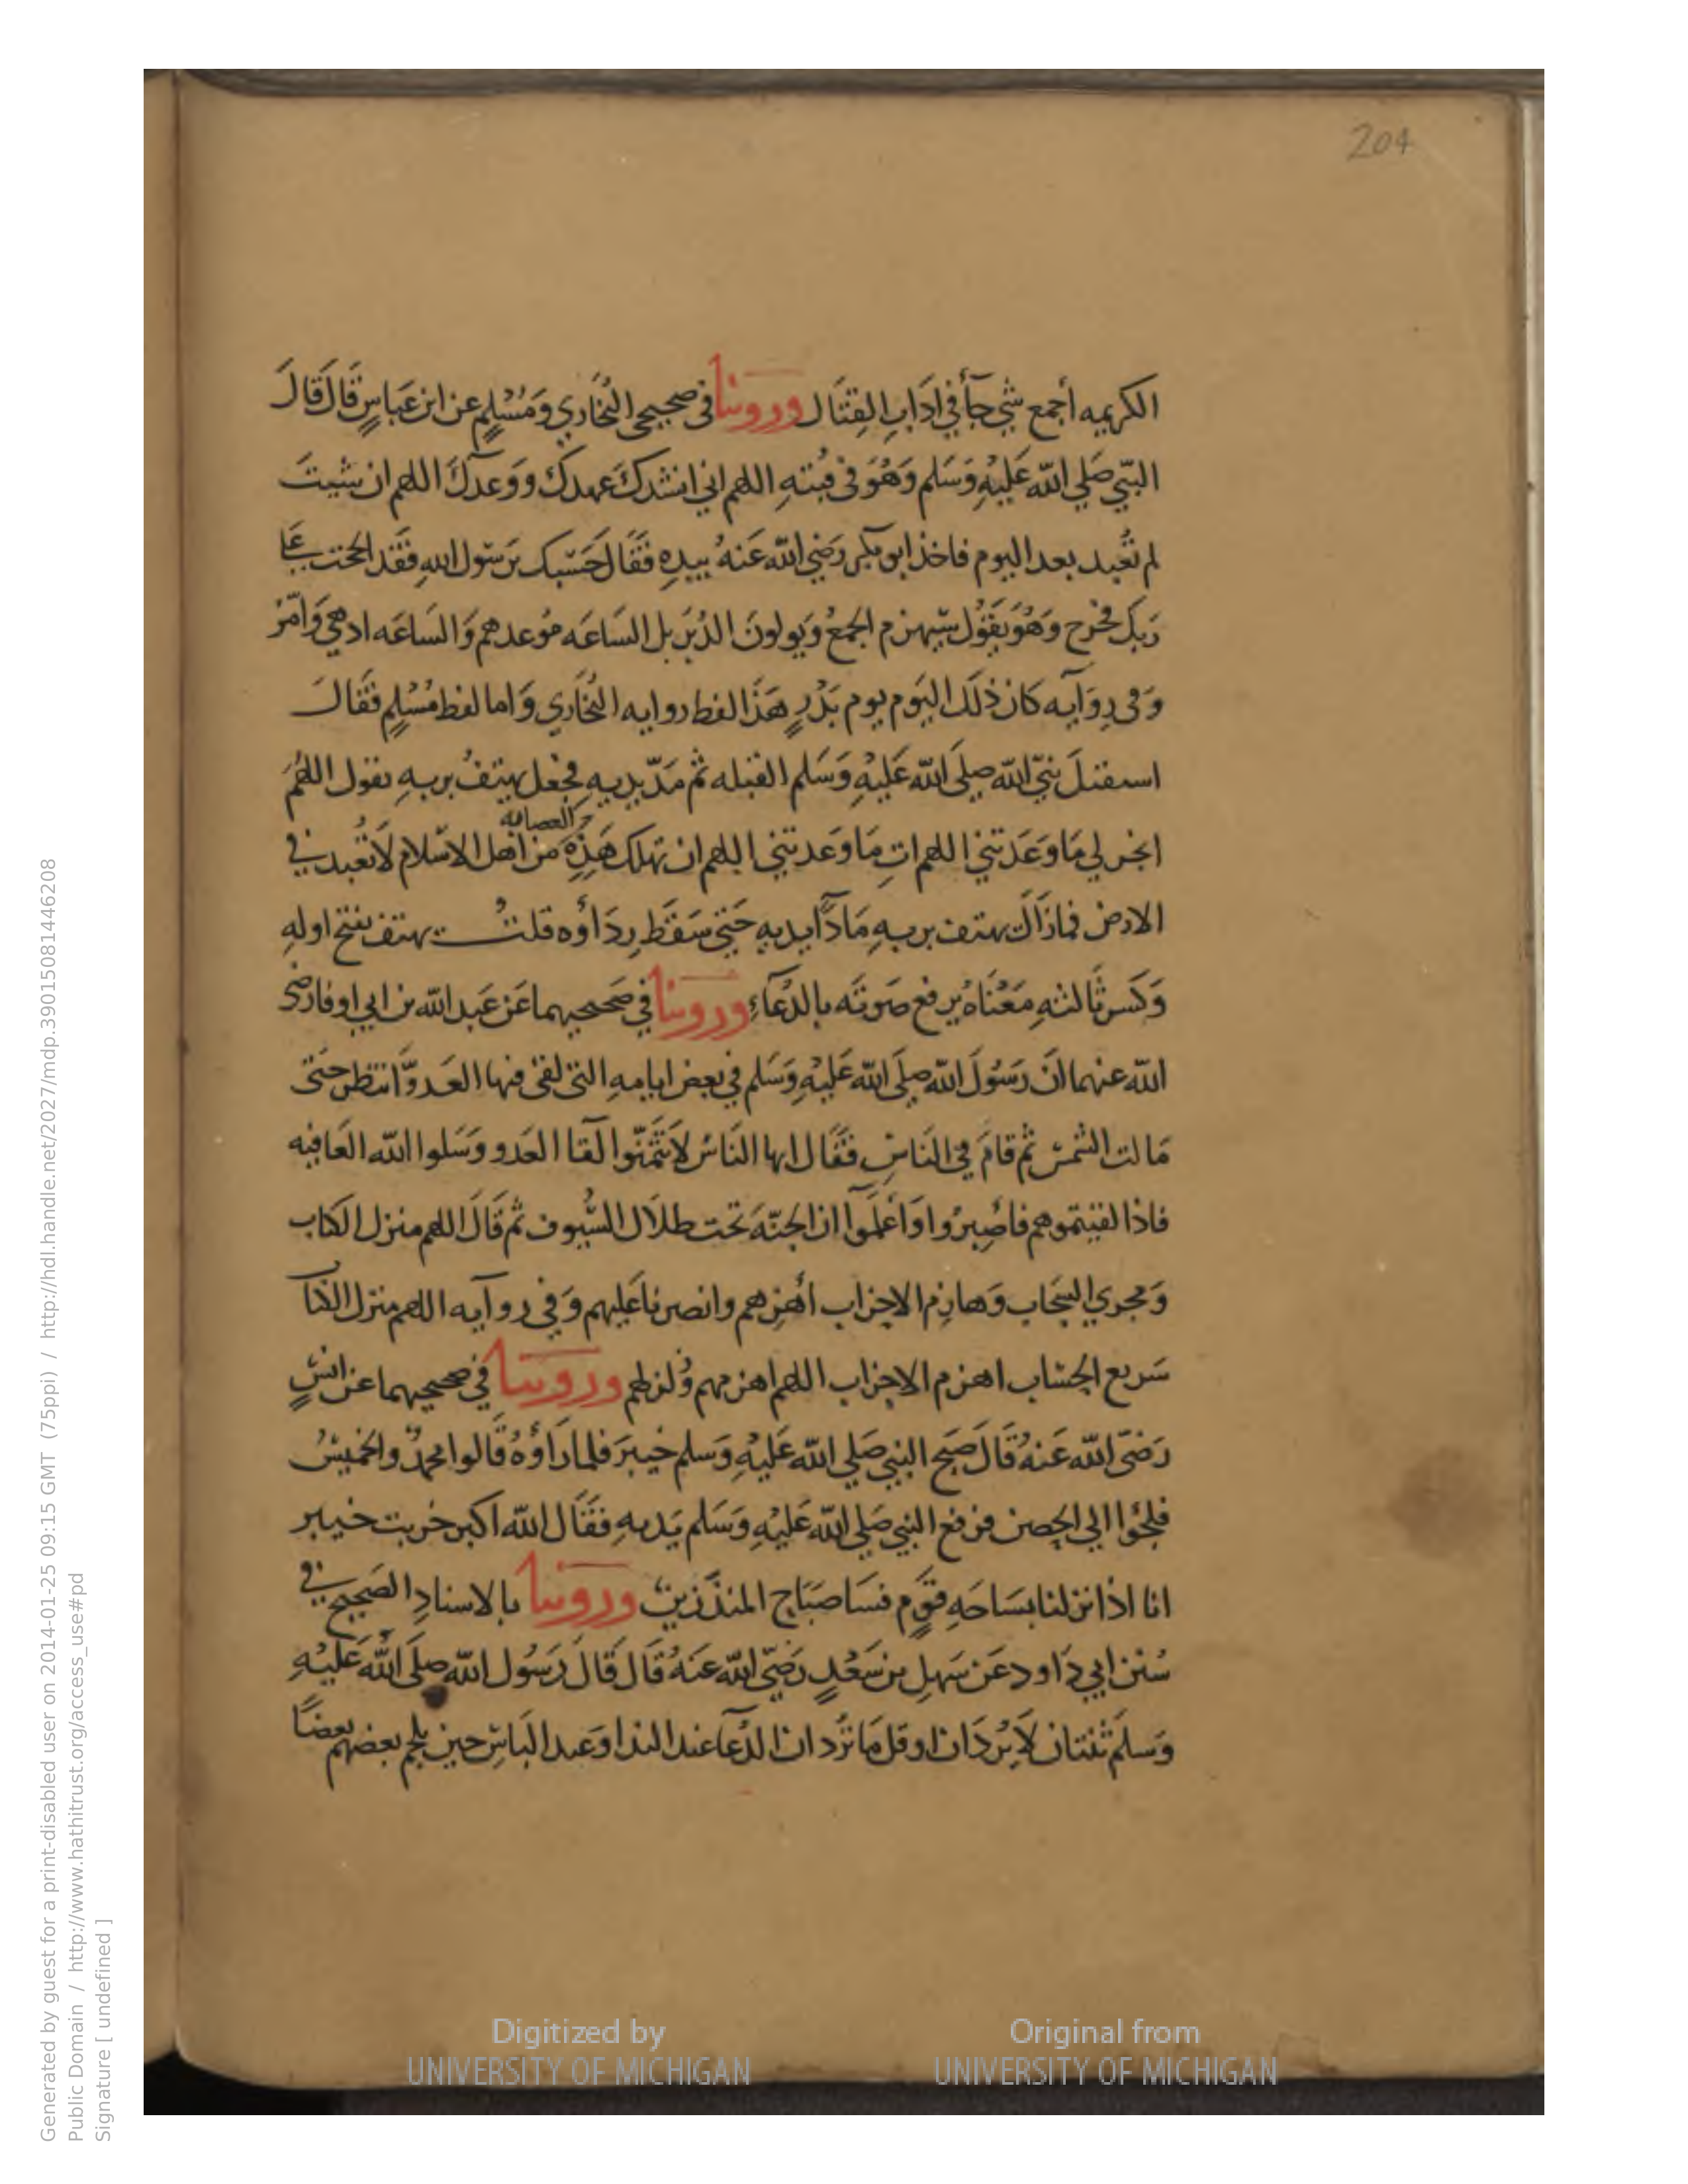 204
الكريمه أجمع شي جآ في اداب القتال وروينا في صحيحي البخاري ومسلم عن ابن عباس قال قال
النبي صلي الله عليه وسلم وهو في قبته اللهم اني انشدك عهدك ووعدك اللهم ان شيت
لم تعبد بعد اليوم فاخذ ابو بكر رضي الله عنه بيده فقال حسبك يرسول الله فقد الححت علي
ربك فخرج وهو يقول سيهزم الجمع ويولون الدبر بل الساعه موعدهم والساعه ادهي وامر
وفي روايه كان ذلك اليوم يوم بدر هذا لفظ روايه البخاري واما لفظ مسلم فقال
استقبل نبي الله صلي الله عليه وسلم القبله ثم مد يديه فجعل يهتف بربه يقول اللهم
العصابه
انجز لي ما وعدتني اللهم ات ما وعدتني اللهم ان تهلك هذه من اهل الاسلام لا تعبد في
الارض فما زال يهتف بربه مادا يديه حتي سقط رداؤه قلت يهتف بفتح اوله
وكسر ثالثه معناه يرفع صوته بالدعاء وروينا في صحيحيهما عن عبد الله بن ابي اوفا رضي
الله عنهما ان رسول الله صلي الله عليه وسلم في بعض ايامه التي لقي فيها العدو انتظر حتي
مالت الشمس ثم قام في الناس فقال ايها الناس لا تتمنوا لقا العدو وسلوا الله العافيه
فاذا لقيتموهم فاصبروا واعلموا ان الجنه تحت ظلال السيوف ثم قال اللهم منزل الكتاب
ومجري السحاب وهازم الاحزاب أهزمهم وانصرنا عليهم وفي روايه اللهم منزل الكتا
سريع الحساب اهزم الاحزاب اللهم اهزمهم وزلزلهم وروينا في صحيحيهما عن انس
رضي الله عنه قال صبح النبي صلي الله عليه وسلم خيبر فلما راؤه قالوا محمد والخميس
فلجؤا الي الحصن فرفع النبي صلي الله عليه وسلم يديه فقال الله اكبر خربت خيبر
انا اذا نزلنا بساحه قوم فسا صباح المنذرين وروينا بالاسناد الصحيح في
سنن ابي داود عن سهل بن سعد رضي الله عنه قال قال رسول الله صلي الله عليه
وسلم ثنتان لا تردان او قل ما تردان الدعا عند الندا وعند الباس حين يلجم بعضهم بعضا
Digitized by
UNIVERSITY OF MICHIGAN
Original from
UNIVERSITY OF MICHIGAN
Generated by guest for a print-disabled user on 2014-01-25 09:15 GMT (75ppi) / http://hdl.handle.net/2027/mdp.39015081446208
Public Domain / http://www.hathitrust.org/access_use#pd
Signature [ undefined ]